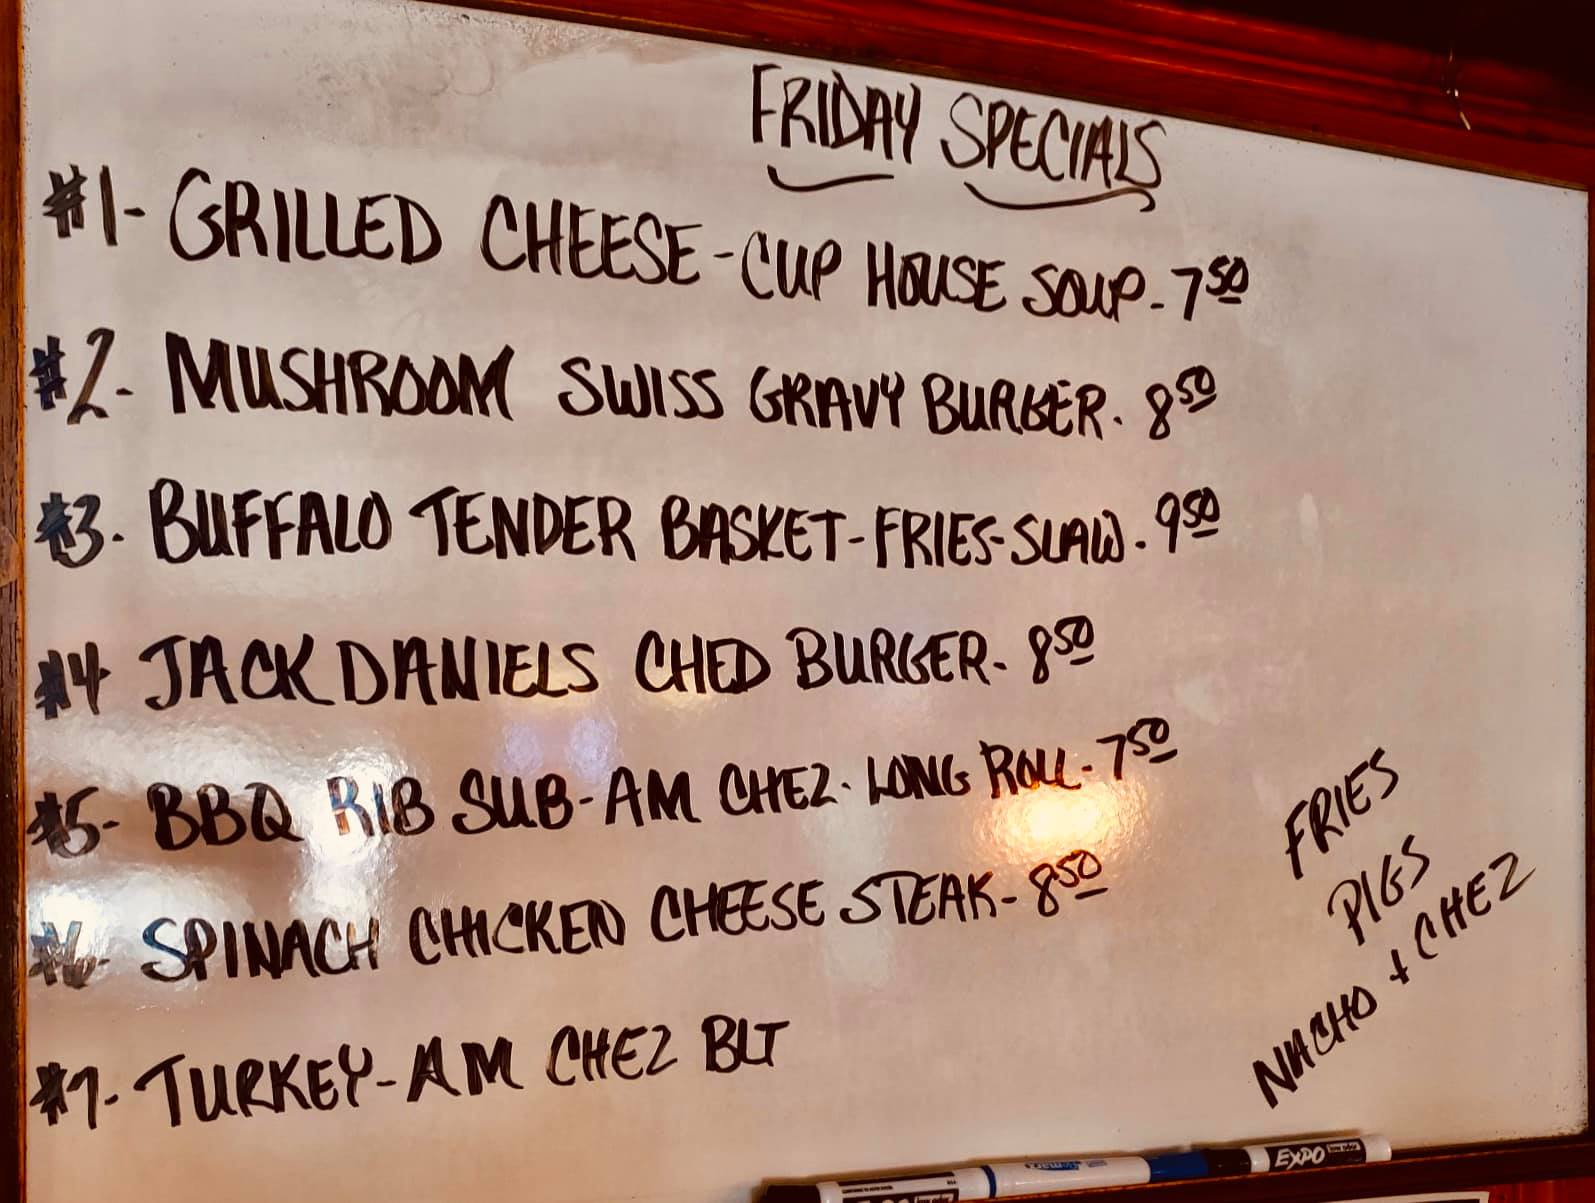 FRIDAY SPECIALS
#1- GRILLED CHEESE - CUP HOUSE SOUP - 7 50
#2- MUSHROOM SWISS GRAVY BURGER. 8 50
#3. BUFFALO TENDER BASKET-FRIES-SLAW. 9 50
#4 JACK DANIELS CHED BURGER- 8 50
#5- BBQ RIB SUB-AM CHEZ. LONG ROLL- 7 50
#6- SPINACH CHICKEN CHEESE STEAK- 8 50
#7- TURKEY-AM CHEZ BLT
FRIES
PIGS
NACHO + CHEZ
EXPO